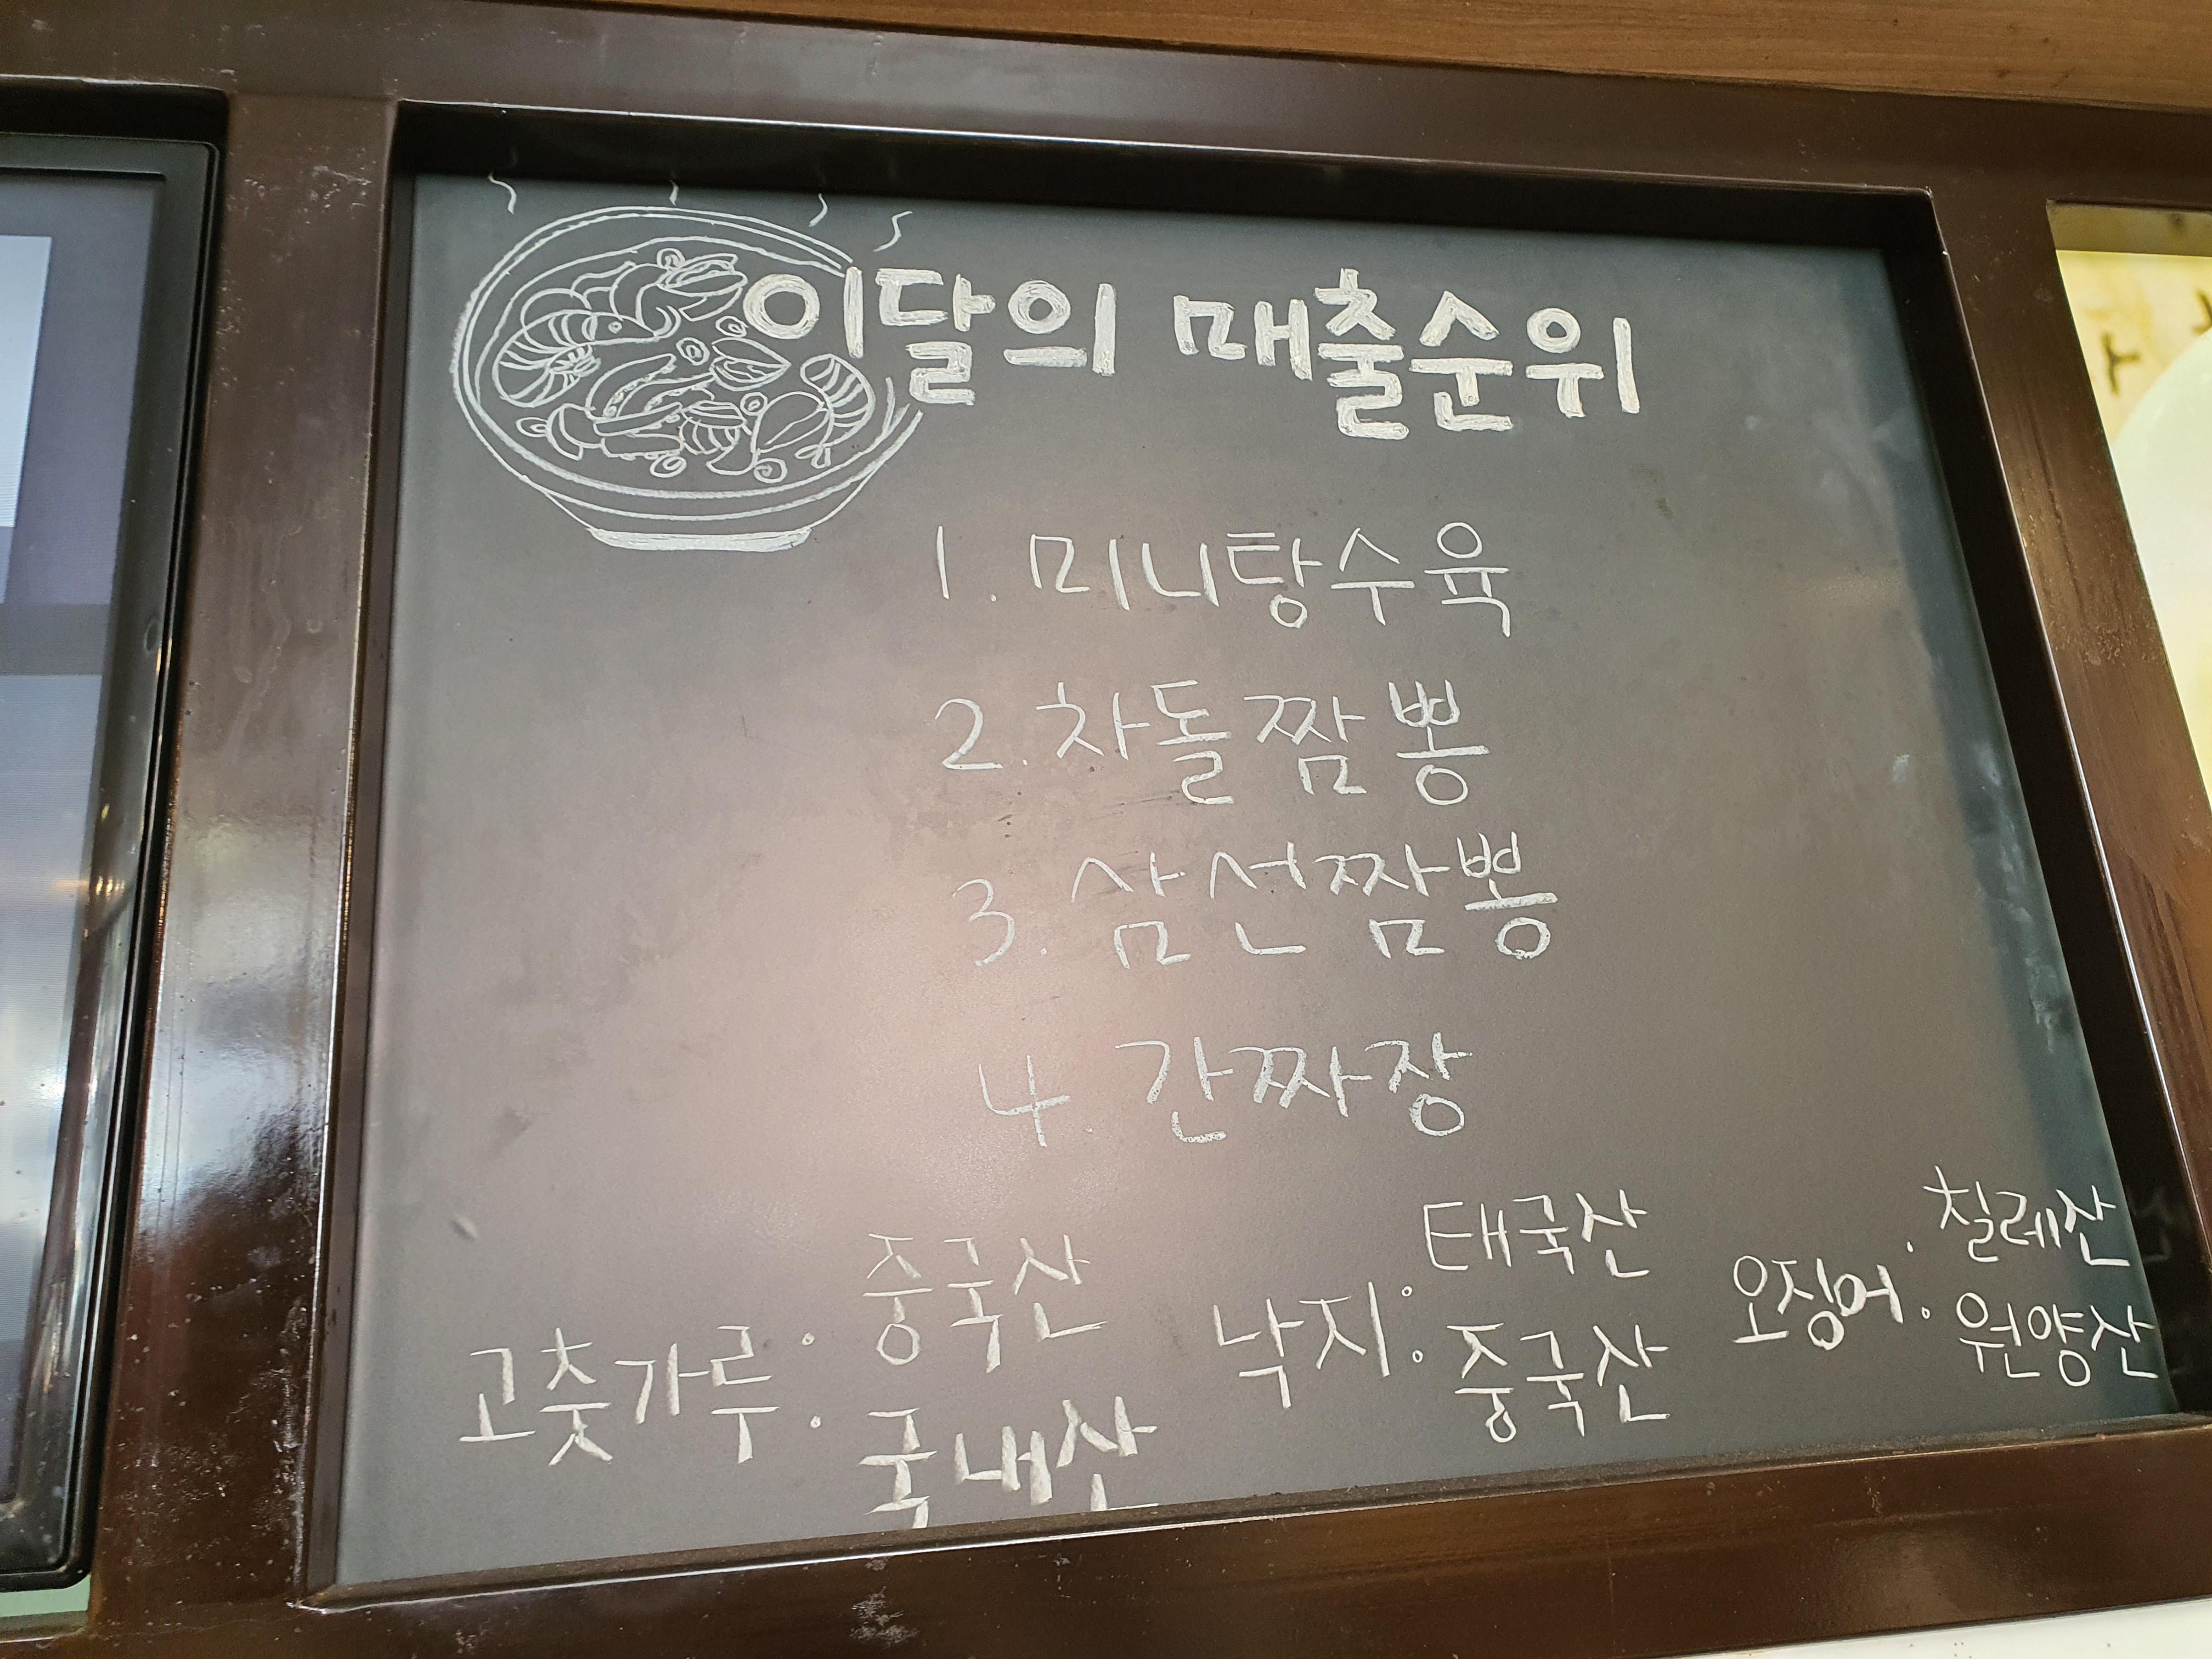 이달의 매출순위
1. 미니탕수육
2. 차돌짬뽕
3. 삼선짬뽕
4. 간짜장
고춧가루: 중국산
국내산
낙지: 태국산
중국산
오징어: 칠레산
원양산